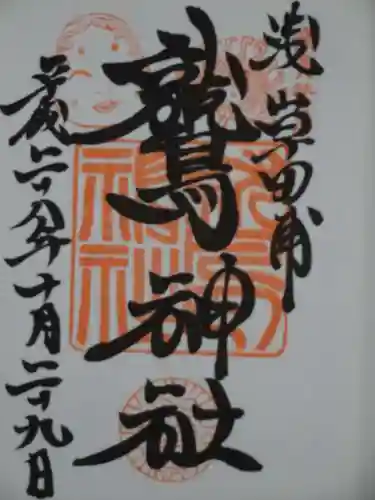 浅草田甫
鷲神社
平成二十八年十月二十九日